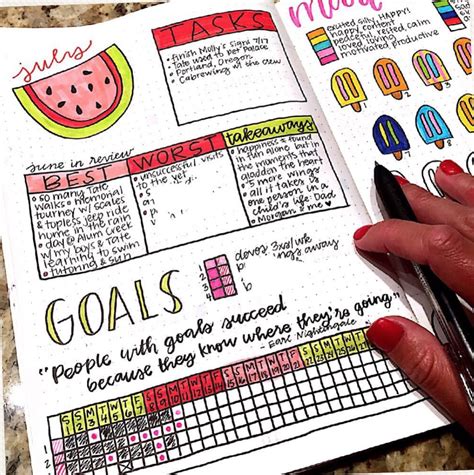 july
TASKS
finish Molly's sign 7/11
Tate used to pet palace
Portland, Oregon
Cabrewing w/ the crew
mood
excited, silly, happy!
happy, content
peaceful, rested, calm
loved, loving
motivated, productive
june in review
BEST
so many Tate
walks & memorial
tourney w/ scales
& topless jeep ride
home in the rain
day @ Alum Creek
w/ my boys & Tate
learning to swim
tutoring & sun
WORST
unsuccessful visits
to the vet
takeaways
happiness is found
in fun alone, but in
the moments that
gladden the heart
5 more wings
all it takes is
one person in a
child's life: Dad
Morgan & me
GOALS
1
2
3
4
devos 3x's/wk
away
"People with goals succeed
because they know where they're going"
Earl Nightengale
S S M T W T F S S M T W T F S S M T W T F S S M T W T F